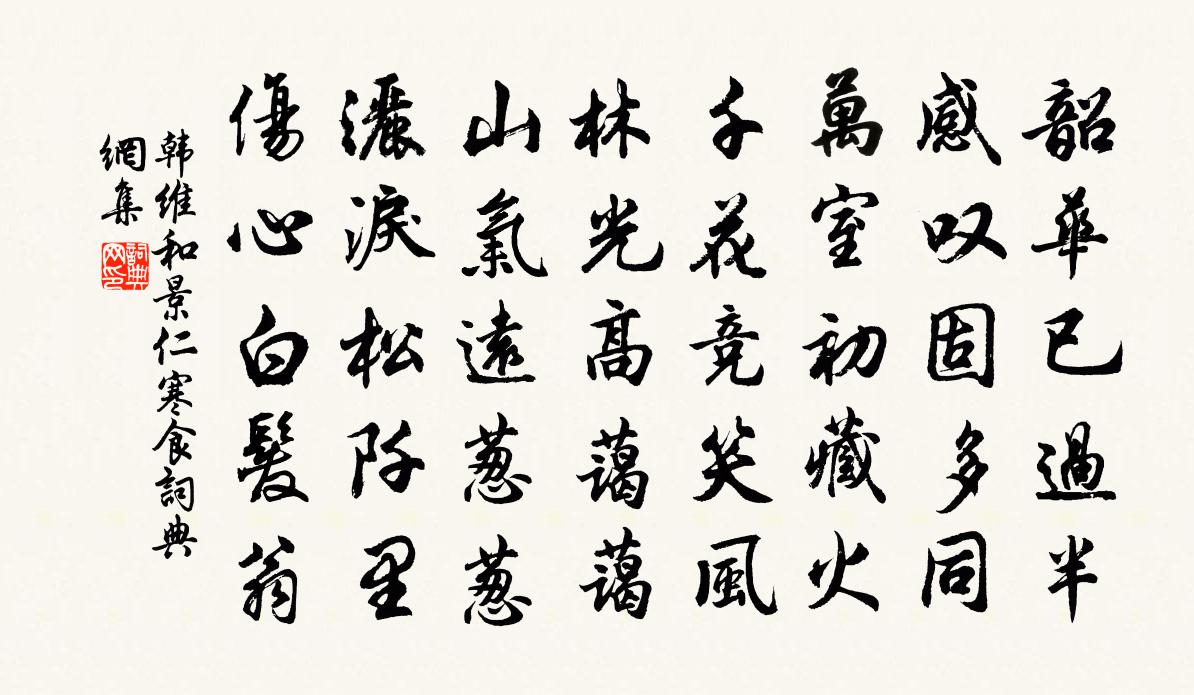 韶華已過半
感叹固多同
萬室初藏火
千花竞笑風
林光高藹藹
山氣遠葱葱
灑淚松阡里
傷心白髮翁
韩維和景仁寒食詞典
網集
詞典网印